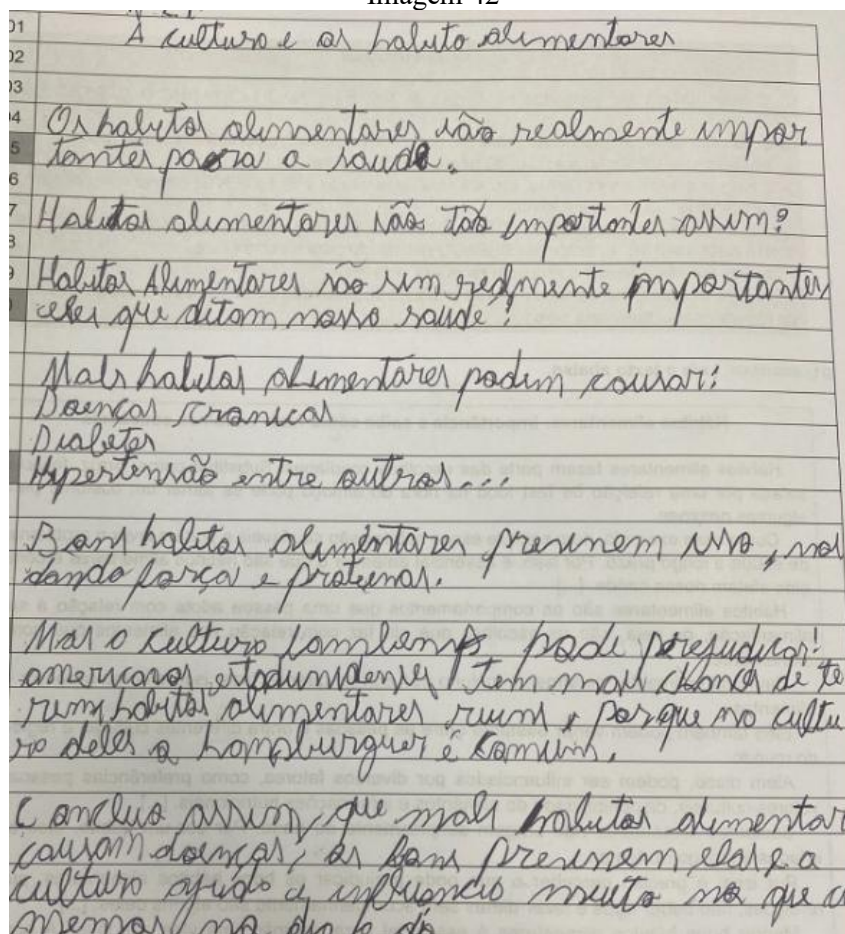 Imagem 42
01 A cultura e os habito alimentares
02
03
4 Os habitos alimentares são realmente impor
5 tantes para a saude.
6
7 Habitos alimentares são tão importantes assim?
Habitos Alimentares são sim realmente importantes
eles que ditam nossa saude!
Mals habitos alimentares podem causar:
Doenças cronicas
Diabetes
Hypertensão entre outras...
Bons habitos alimentares previnem isso, nos
dando força e proteinas.
Mas a cultura tambem pode prejudicar!
americanos estadunidenses tem mais chance de te
rem habitos alimentares ruins, porque na cultu
ra deles o hampburguer é comum.
Concluo assim, que mals habitos alimentar
causam doenças, os bons previnem elas e a
cultura ajuda a influencia muito no que
memos no dia a dia